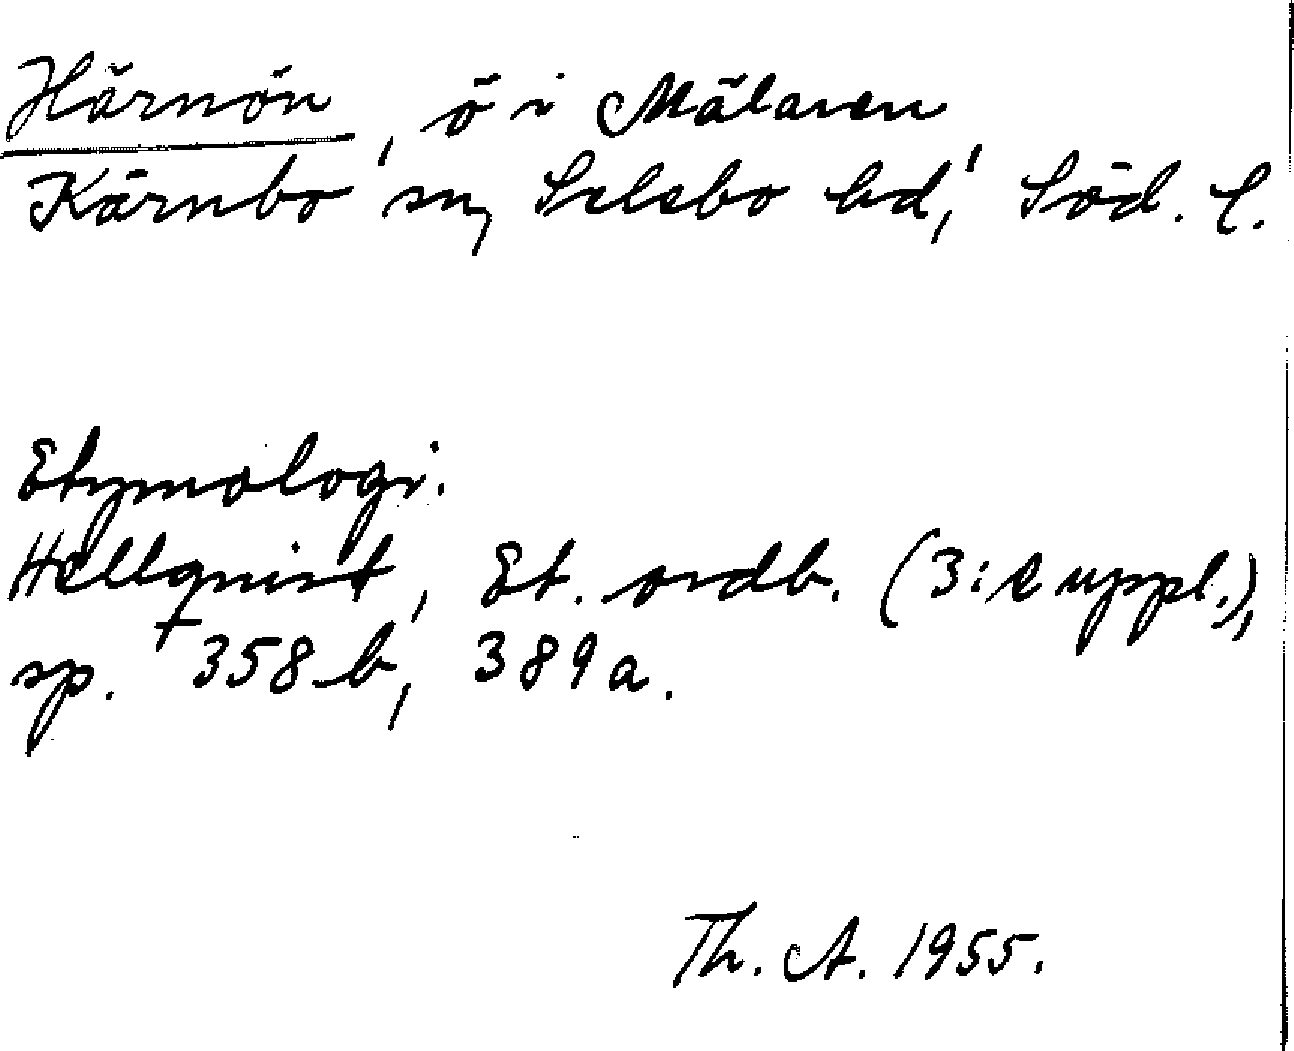 Härnön, ö i Mälaren,
Kärnbo sn, Selebo hd, Söd. l.
Etymologi.
Hellquist, Et. ordb. (3:e uppl.),
sp. 358 b, 389 a.
Th. A. 1955.